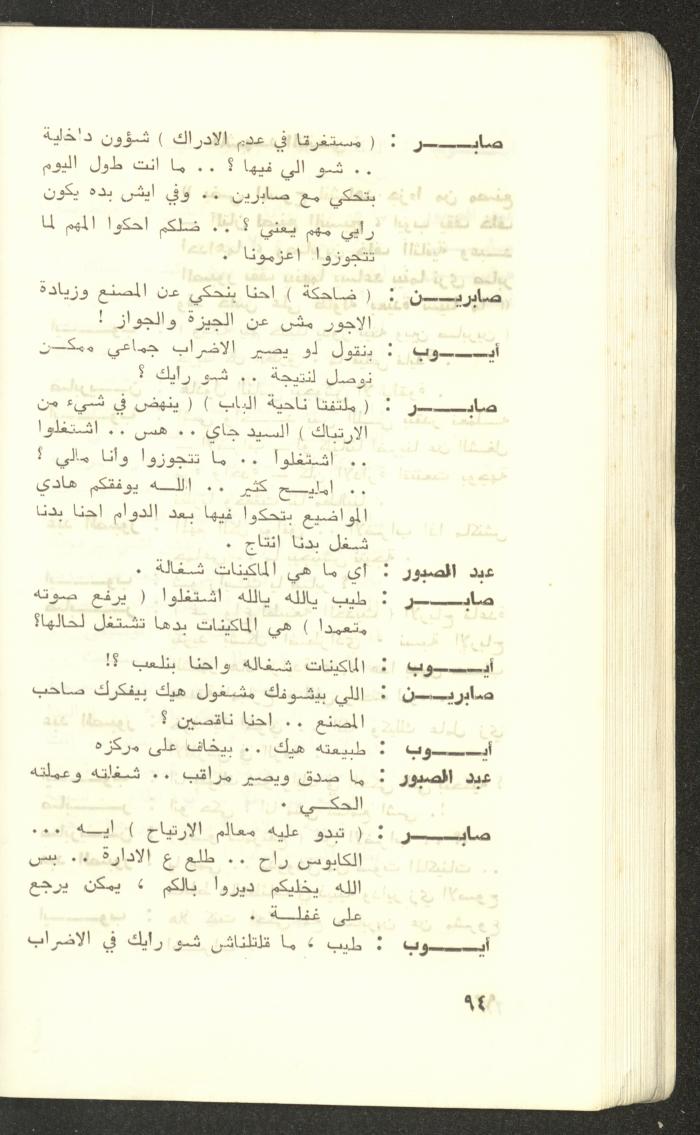 صابـــــر : ( مستغرقا في عدم الادراك ) شؤون داخلية
.. شو الي فيها ؟ .. ما انت طول اليوم
بتحكي مع صابرين .. وفي ايش بده يكون
رايي مهم يعني ؟ .. ضلكم احكوا المهم لما
تتجوزوا اعزمونا .
صابريـــن : ( ضاحكة ) احنا بنحكي عن المصنع وزيادة
الاجور مش عن الجيزة والجواز !
أيـــــوب : بنقول لو يصير الاضراب جماعي ممكـن
نوصل لنتيجة .. شو رايك ؟
صابـــــر : ( ملتفتا ناحية الباب ) ( ينهض في شيء من
الارتباك ) السيد جاي .. هس .. اشتغلوا
.. اشتغلوا .. ما تتجوزوا وانا مالي ؟
.. امليـــح كثير .. اللـــه يوفقكم هادي
المواضيع بتحكوا فيها بعد الدوام احنا بدنا
شغل بدنا انتاج .
عبد الصبور : اي ما هي الماكينات شغالة .
صابـــــر : طيب يالله يالله اشتغلوا ( يرفع صوته
متعمدا ) هي الماكينات بدها تشتغل لحالها؟
أيـــــوب : الماكينات شغاله واحنا بنلعب ؟!
صابريـــن : اللي بيشوفك مشغول هيك بيفكرك صاحب
المصنع .. احنا ناقصين ؟
أيـــــوب : طبيعته هيك .. بيخاف على مركزه
عبد الصبور : ما صدق ويصير مراقب .. شغلته وعملته
الحكـــي .
صابـــــر : ( تبدو عليه معالم الارتياح ) ايـــه ...
الكابوس راح .. طلع ع الادارة .. بس
الله يخليكم ديروا بالكم ، يمكن يرجع
على غفلـــة .
أيـــــوب : طيب ، ما قلتلناش شو رايك في الاضراب
٩٤